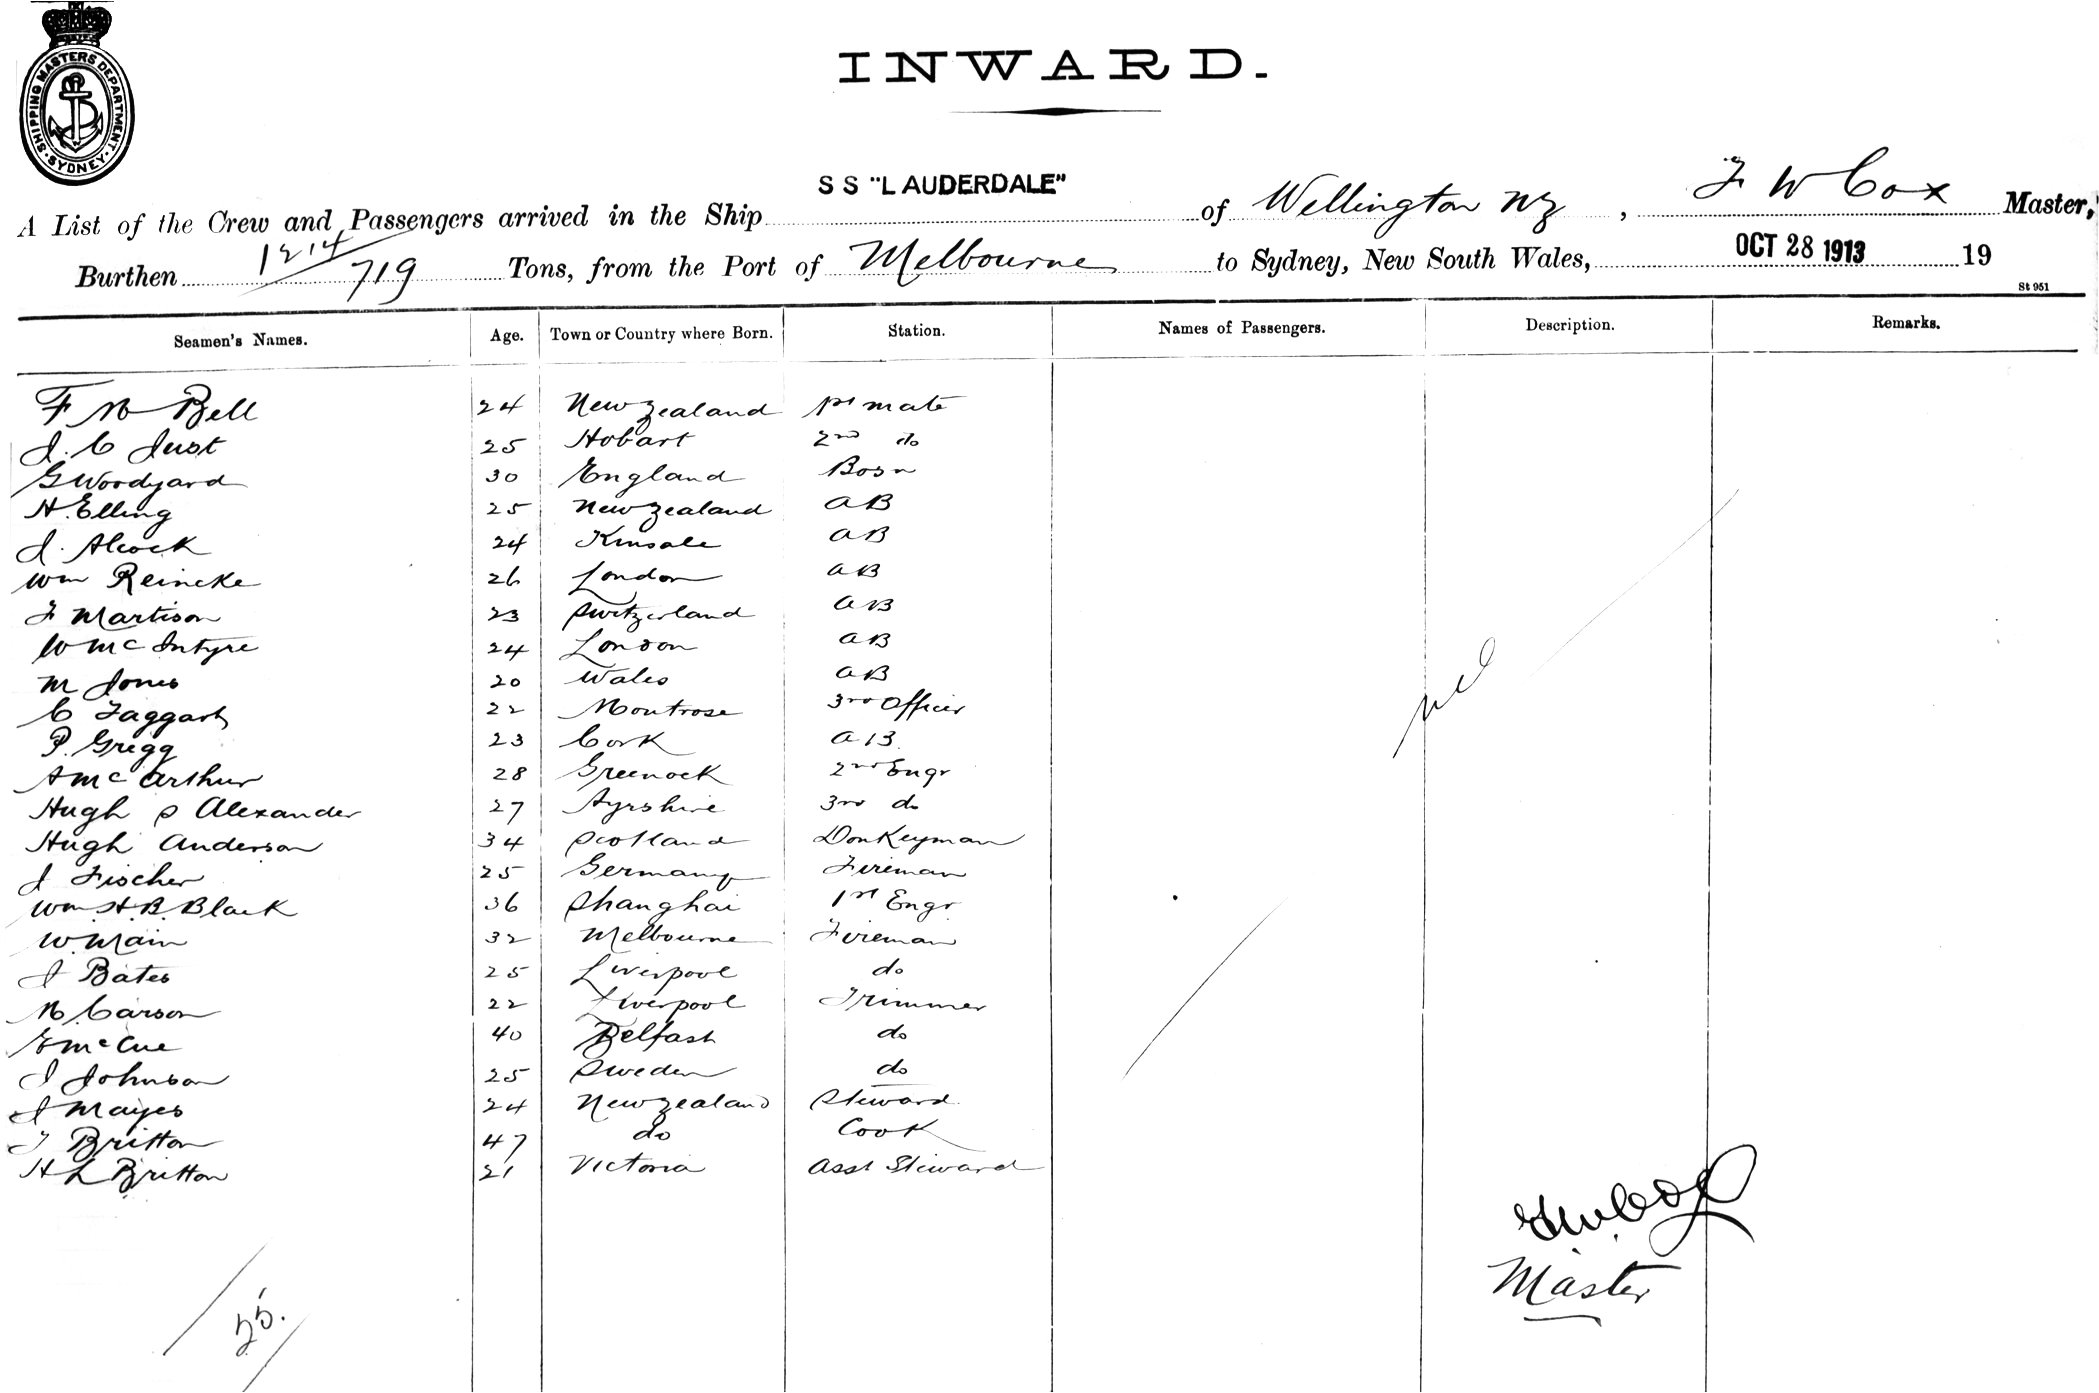 SHIPPING MASTERS DEPARTMENT
SYDNEY
INWARD.
A List of the Crew and Passengers arrived in the Ship SS "LAUDERDALE" of Wellington NZ, F W Cox Master,
Burthen 1214 / 719 Tons, from the Port of Melbourne to Sydney, New South Wales, OCT 28 1913 19
St 951
Seamen's Names. Age. Town or Country where Born. Station. Names of Passengers. Description. Remarks.
F W Bell 24 New Zealand 1st mate
J. C Just 25 Hobart 2nd do
G Woodyard 30 England Bosn
H. Elling 25 New Zealand AB
J. Alcock 24 Kinsale AB
Wm Reincke 26 London AB
F Martison 23 Switzerland AB
W McIntyre 24 London AB
M Jones 20 Wales AB
C Taggart 22 Montrose 3rd Officer
P. Gregg 23 Cork AB.
A McArthur 28 Greenock 2nd Engr
Hugh S Alexander 27 Ayrshire 3rd do
Hugh Anderson 34 Scotland Donkeyman
J Fischer 25 Germany Fireman
Wm. H. B. Black 36 Shanghai 1st Engr
W. Main 32 Melbourne Fireman
J Bates 25 Liverpool do
N Carson 22 Liverpool Trimmer
McCue 40 Belfast do
J Johnson 25 Sweden do
J Mayes 24 New Zealand Steward.
T Britton 47 do Cook
H L Britton 21 Victoria Asst Steward
nil
F W Cox
Master
25.